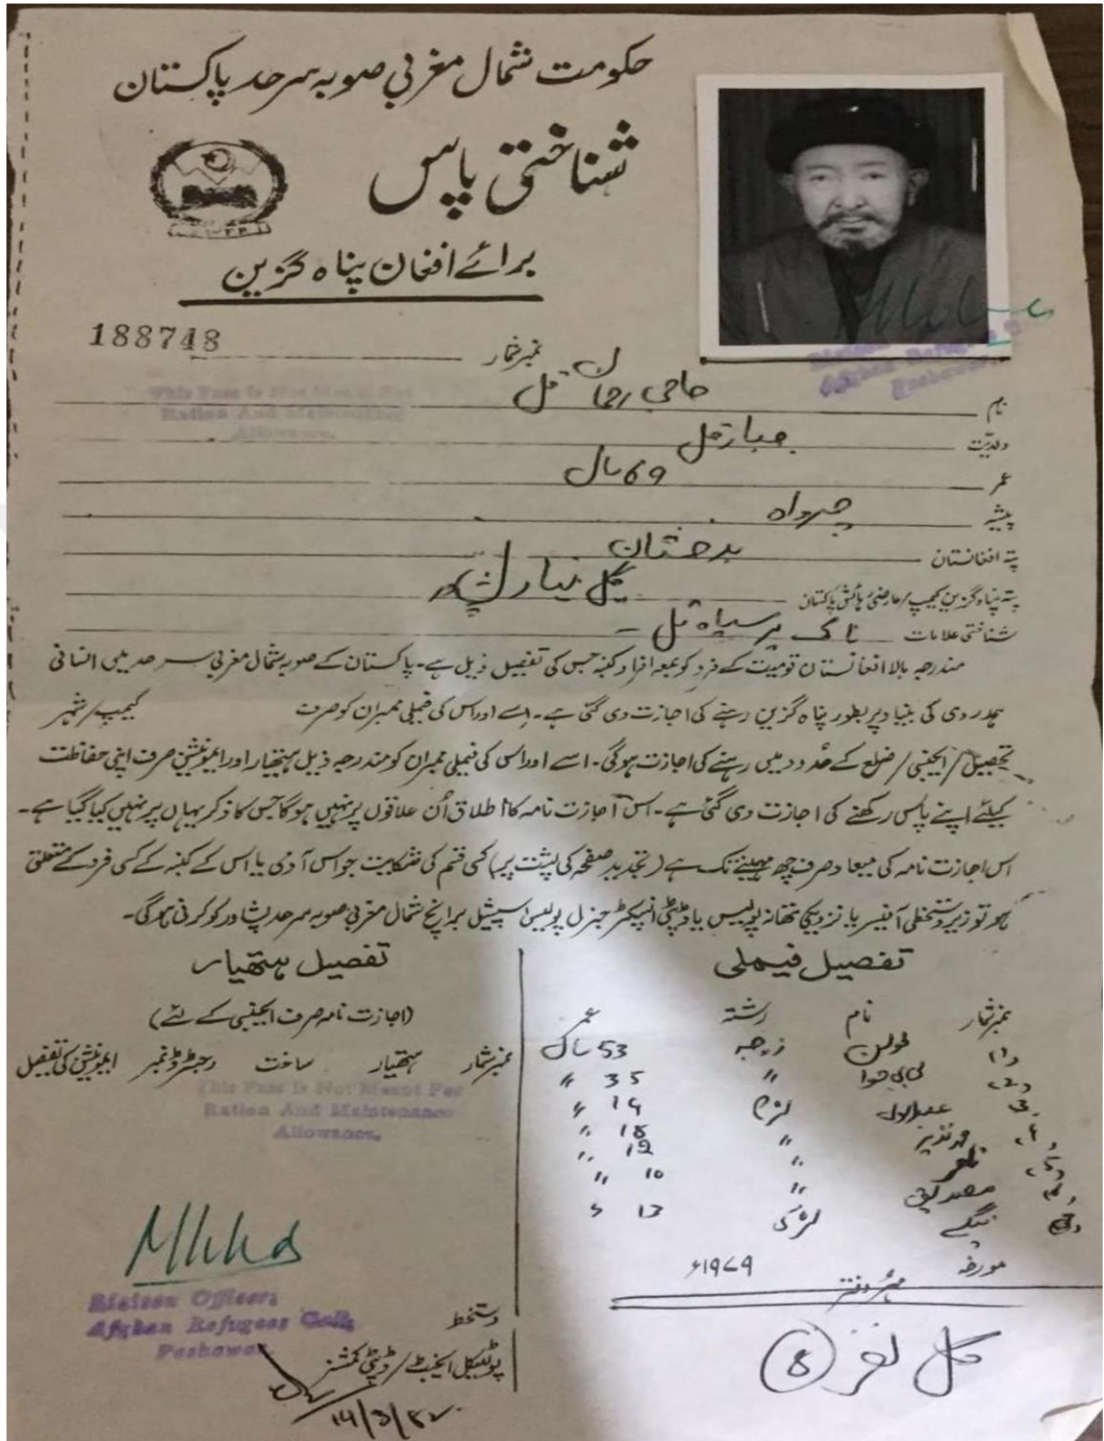 حکومت شمال مغربی صوبہ سرحد پاکستان
شناختی پاس
برائے افغان پناہ گزین
نمبر شمار 188748
This Pass Is Not Meant For
Ration And Maintenance
Allowance.
Afghan Refugees
Peshawar
نام حاجی رحمان قل
ولدیت جبار قل
عمر 69 سال
پیشہ چرواہ
پتہ افغانستان بدخشان
پتہ پناہ گزین کیمپ/عارضی رہائش پاکستان
شناختی علامات ناک پر سیاہ تل -
مندرجہ بالا افغانستان قومیت کے فرد کو بمعہ افراد کنبہ جس کی تفصیل ذیل ہے۔ پاکستان کے صوبہ شمال مغربی سرحد میں انسانی
ہمدردی کی بنیاد پر بطور پناہ گزین رہنے کی اجازت دی گئی ہے۔ اسے اور اس کی فیملی ممبران کو صرف کیمپ/شہر
تحصیل/ایجنسی/ضلع کے حدود میں رہنے کی اجازت ہوگی۔ اسے اور اس کی فیملی ممبران کو مندرجہ ذیل ہتھیار اور ایمونیشن صرف اپنی حفاظت
کیلئے اپنے پاس رکھنے کی اجازت دی گئی ہے۔ اس اجازت نامہ کا اطلاق اُن علاقوں پر نہیں ہوگا جس کا ذکر یہاں پر نہیں کیا گیا ہے۔
اس اجازت نامہ کی میعاد صرف چھ مہینے تک ہے (تجدید صفحہ کی پشت پر) کسی قسم کی شکایت جو اس آدمی یا اس کے کنبہ کے کسی فرد کے متعلق
ہو تو زیر دستخطی آفیسر یا نزدیکی تھانہ پولیس یا ڈپٹی انسپکٹر جنرل پولیس اسپیشل برانچ شمال مغربی صوبہ سرحد پشاور کو کرنی ہوگی۔
تفصیل فیملی
نمبر شمار نام رشتہ عمر
(1) زوجہ 53 سال
(2) بی بی حوا " 35 "
3 لڑکا 19 "
4 محمد نذیر " 18 "
(5) " 12 "
" 10 "
لڑکی 13 "
مورخہ 1979ء
مہر دفتر
کل نفر (8)
تفصیل ہتھیار
(اجازت نامہ صرف ایجنسی کے لئے)
نمبر شمار ہتھیار ساخت رجسٹرڈ نمبر ایمونیشن کی تفصیل
This Pass Is Not Meant For
Ration And Maintenance
Allowance.
Liaison Officer,
Afghan Refugees Cell,
Peshawar.
دستخط
پولیٹیکل ایجنٹ/ڈپٹی کمشنر